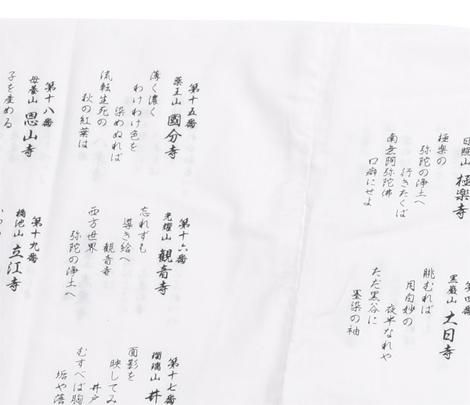 日照山 極楽寺
極楽の
弥陀の浄土へ
行きたくば
南無阿弥陀佛
口癖にせよ
黒巖山 大日寺
眺むれば
月白妙の
夜半なれや
ただ黒谷に
墨染の袖
第十五番
薬王山 國分寺
薄く濃く
わけわけ色を
染めぬれば
流転生死の
秋の紅葉は
第十六番
光耀山 観音寺
忘れずも
導き給へ
観音寺
西方世界
弥陀の浄土へ
第十七番
瑠璃山 井
面影を
映してみ
井戸
むすべば胸
垢や落
第十八番
母養山 恩山寺
子を産める
第十九番
橋池山 立江寺